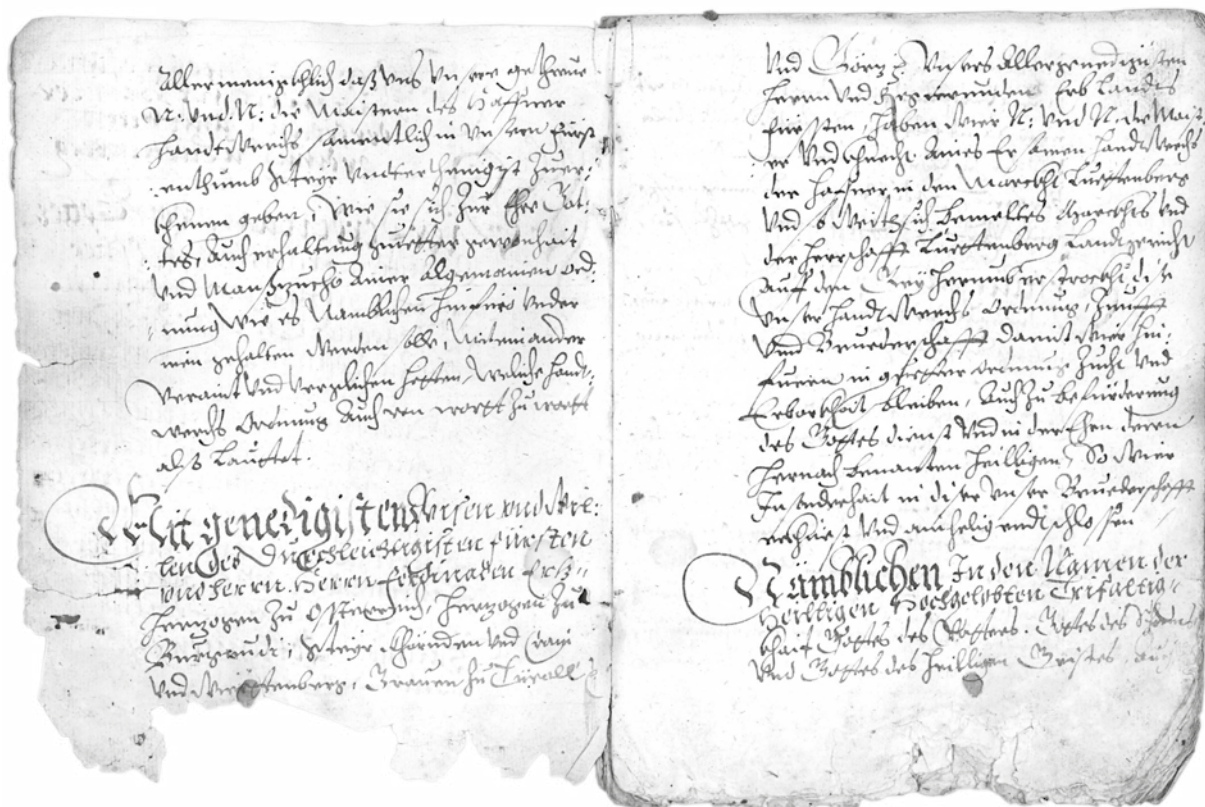 Allermenigkhlich daß unns unsere getreue
N: und N: die Maistern des Haffner
Handtwerchs samentlich in unserm Fürst„
enthumb Steyr underthenigist zuer„
khenen geben, Wie sie sich zur Ehr Got„
tes, auch erhaltung guetter gewonhait
und Manszucht ainer Algemainen ord„
nung wie es Namblichen hinfüro under
inen gehalten werden solle, miteinander
veraint und verglichen hetten, weliche Handt„
werchs Ordnung auch von wortt zu wortt
alß lauttet.
Mit genedigisten Wissen und Wil„
len des Durchleichtigisten Fürsten
und Herrn. Herrn Ferdinaden Ertz„
herzogen zu Osterreich, Herzogen zu
Burgundi, Steyr Khärnden und Crain
und Wierttenberg, Graven zu Tiroll
und Görz &. Unsers allergenedigisten
Herrn und Erb Landts
Fürssten, haben wier N: und N: die Maist„
er und Khnecht Aines Ersamen Handtwerchs
der Haffner in den Marckht
und so weith sich bemeltes Marckhts und
der Herrschafft Landtgericht
auf dem herumb erstreckht dise
unser Handtwerchs Ordnung, Zunfft
und Bruederschafft damit wier hin„
furan in guetter Ordnung Zucht und
Erbarkhait bleiben, auch zu befürderung
des Gottes dienst und in der Ehen deren
hernach benanten Heilligen, So wier
Insonderhait in diser unser Bruederschafft
und ainhelig endtschlossen
Namblichen In den Namen der
Heilligen Hochgelobten Trifaltig„
khait Gottes des Vatters. Gottes des Sohns
und Gottes des Heilligen Geistes, auch